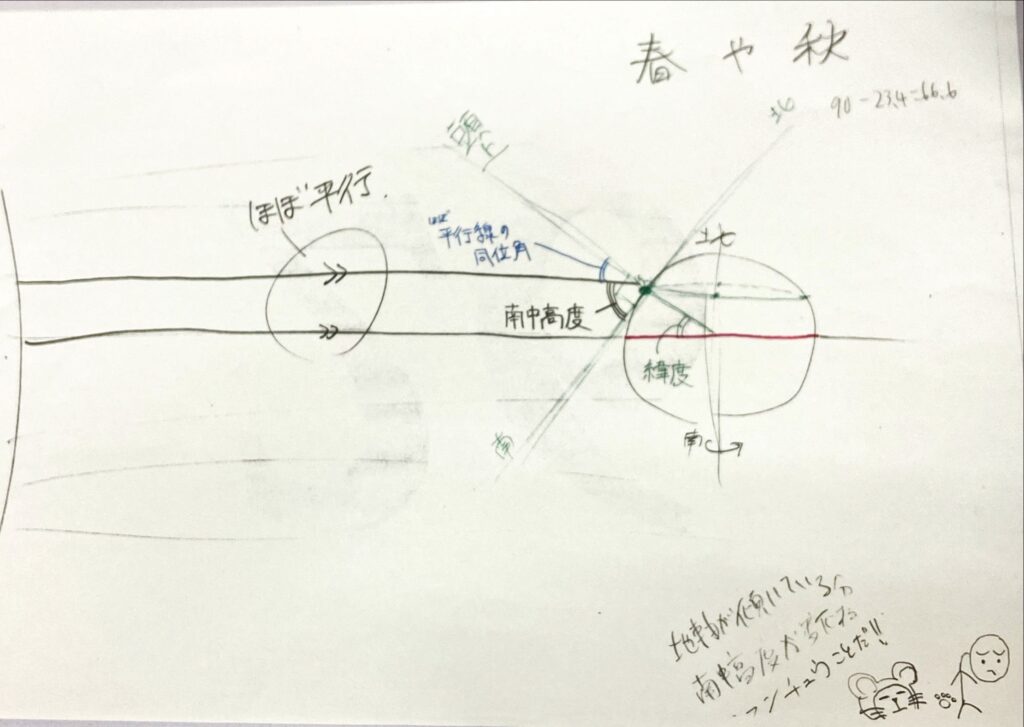 春や秋
90-23.4=66.6
北
頭上
ほぼ平行.
ほぼ
平行線の
同位角
北
南中高度
緯度
南
南
地軸が傾いている分
南中高度が変化する
ことだ!!